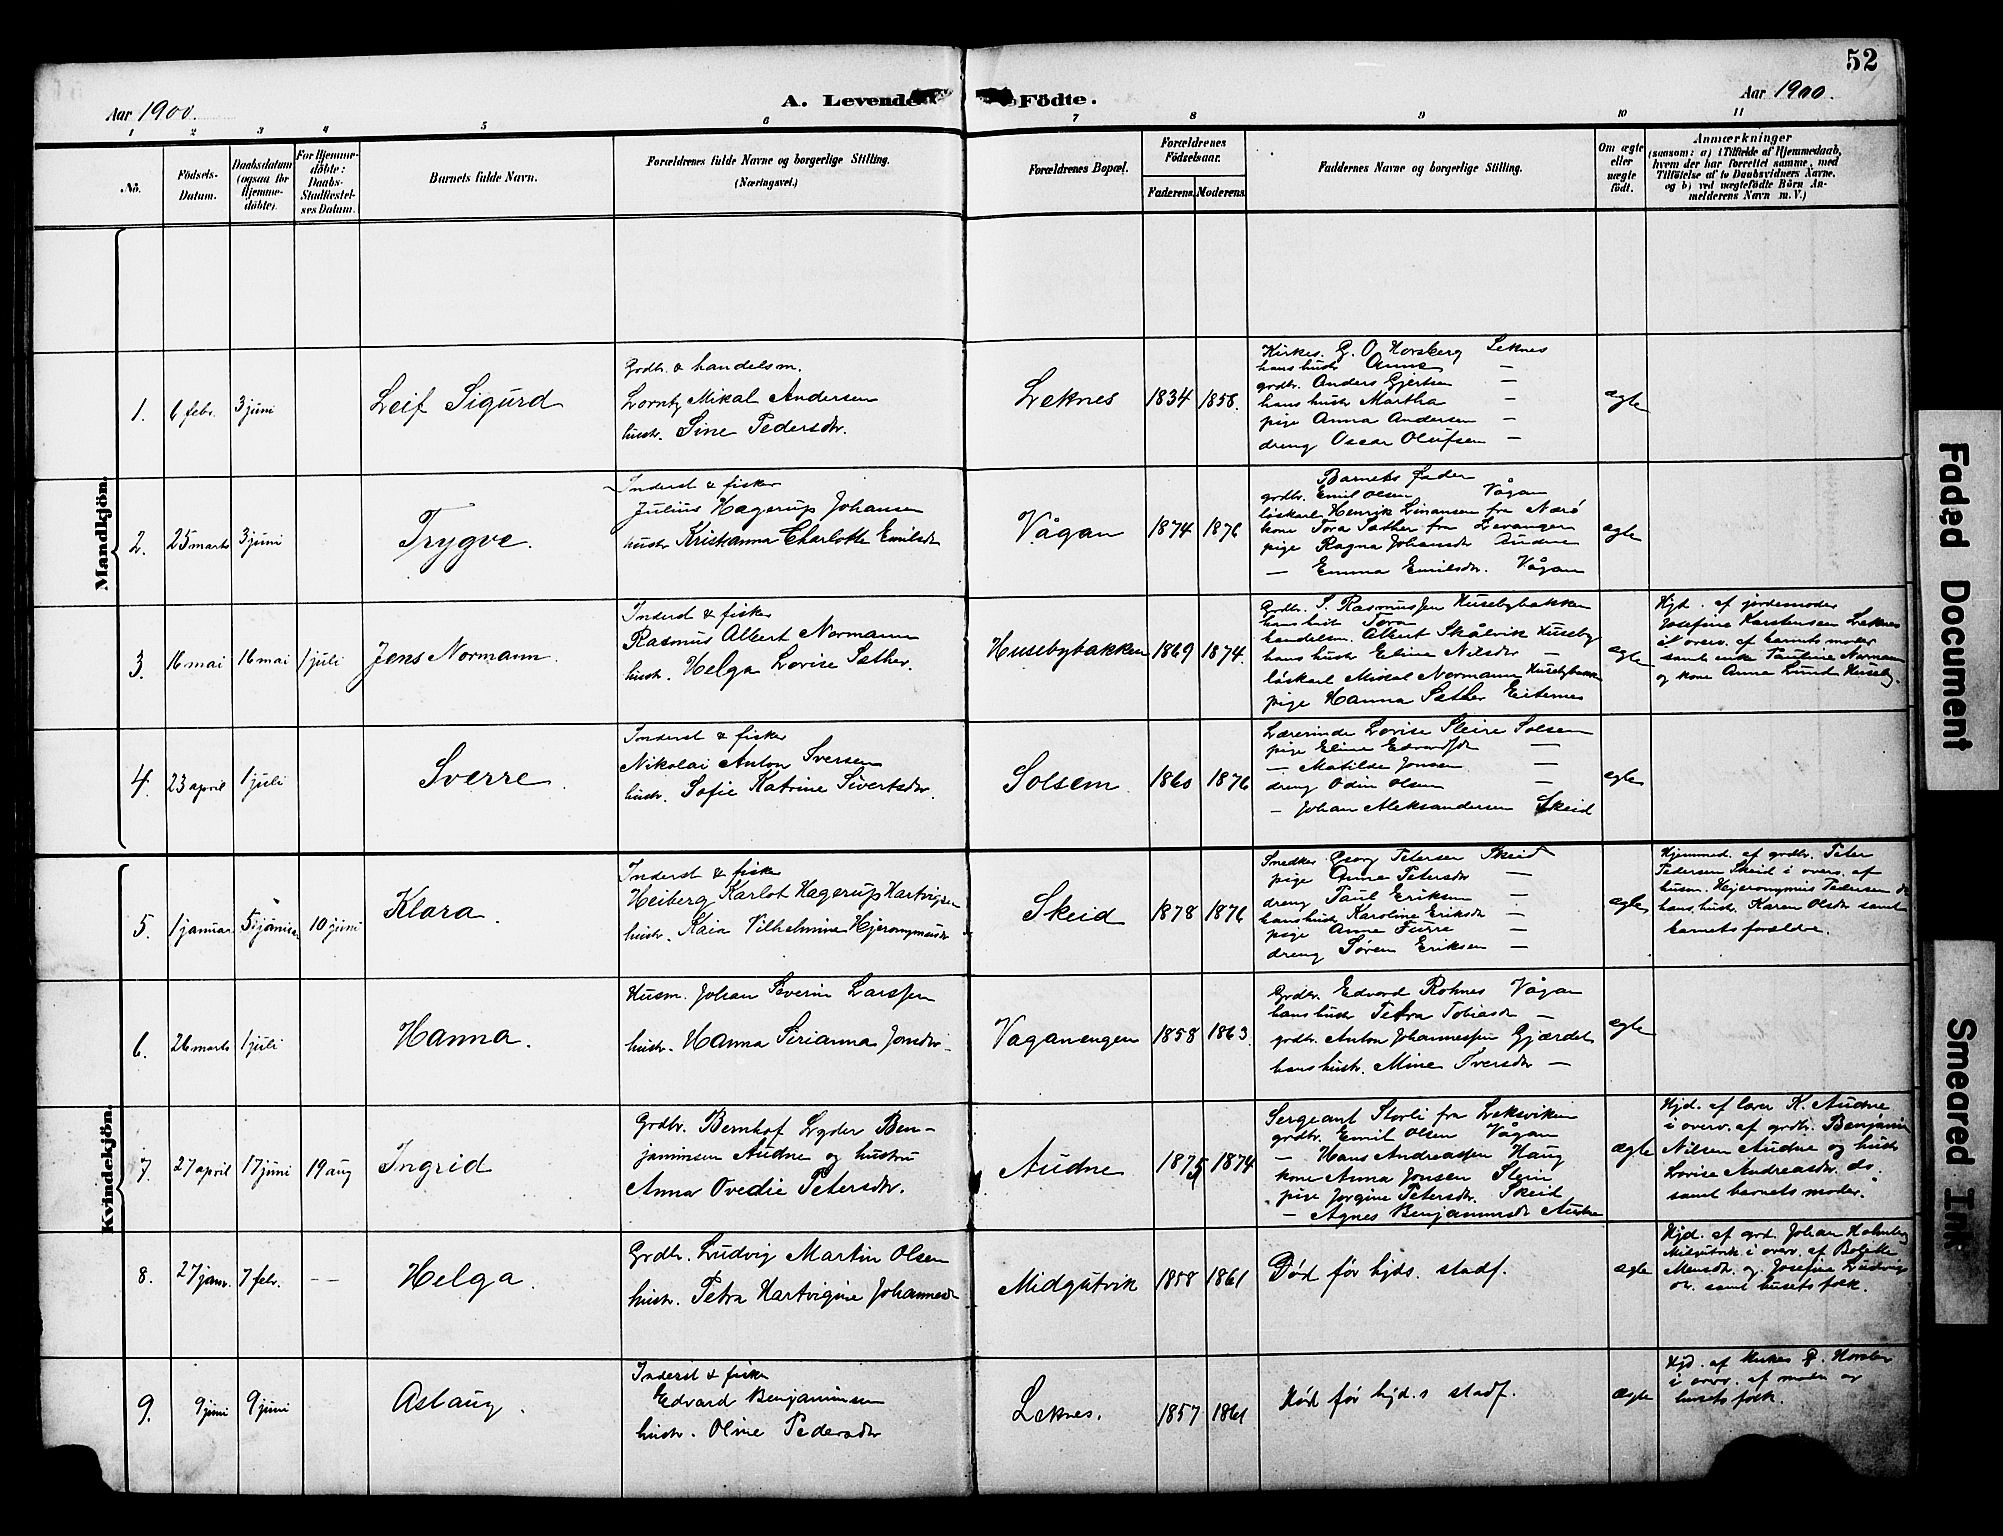 52
Aar 1900.
A. Levende Födte.
Aar 1900.
1 2 3 4 5 6 7 8 9 10 11
No.
Födsels-Datum.
Daabsdatum (ogsaa for Hjemme-döbte).
For Hjemme-döbte: Daabs-Stadfæstel-ses Datum.
Barnets fulde Navn.
Forældrenes fulde Navne og borgerlige Stilling.
(Næringsvei.)
Forældrenes Bopæl.
Forældrenes Födselsaar.
Faderens. Moderens.
Faddernes Navne og borgerlige Stilling.
Om ægte eller uægte födt.
Anmærkninger
(saasom: a) i Tilfælde af Hjemmedaab,
hvem der har forrettet samme, med
Tilföielse af to Daabsvidners Navne.
og b) ved uægtefödte Börn An-
melderens Navn m. V.)
Mandkjön.
1. 6 febr. 3 juni
Leif Sigurd
Grdbr. & handelsm.
Lorntz Mikal Andersen
hustr. Sine Pedersdtr.
Leknes 1834 1858.
Kirkes. G. O. Horsberg Leknes
hans hustr Anne —
grdbr. Anders Gjertsen —
hans hustr Martha —
pige Anna Andersen —
dreng Oscar Olufsen —
ægte
2. 25 marts 3 juni
Trygve.
Inderst & fisker
Julius Hagerup Johansen
hustr Kristianna Charlotte Emilsdtr
Vågan 1874 1876
Barnets fader
grdbr. Emil Olsen Vågan
löskarl Henrik Linansen fra Nærö
kone Tora Sather fra Levanger
pige Ragna Johansdtr Audne
— Emma Emilsdtr. Vågan
ægte
3. 16 mai 16 mai 1 juli
Jens Normann.
Inderst & fisker
Rasmus Albert Normann
hustr. Helga Lovise Sæther.
Husebybakken 1869 1874.
Grdbr. S. Rasmussen Husebybakken
hans hustr Tora
handelsm. Albert Skålvik Huseby
hans hustr Eline Nilsdtr —
löskarl Mikal Normann Husebybakken
pige Hanna Sæther Eiternes
ægte
Hjd. af jordemoder
Josefine Karstensen Leknes
i overv. af barnets moder
samt enke Pauline Normann
og kone Anna Lund Huseby.
4. 23 april 1 juli
Sverre.
Inderst & fisker
Nikolai Anton Iversen
hustr. Sofie Katrine Sivertsdtr.
Solsem. 1860 1876
Lærerinde Lovise Sleire Solsem
pige Eline Edvardsdtr —
— Matilde Jonsen —
dreng Odin Olsen —
— Johan Aleksandersen Skeid
ægte
Kvindekjön.
5. 1 januar 5 januar 10 juni
Klara.
Inderst & fisker
Heiberg Karlot Hagerup Hartvigsen
hustr. Kaia Vilhelmine Hjeronymusdtr
Skeid 1878 1876
Snedker Georg Petersen Skeid
pige Anna Petersdtr —
dreng Paul Eriksen —
hans hustr Karoline Eriksdtr —
pige Anna Furre —
dreng Sören Eriksen —
ægte
Hjemmed. af grdbr. Peter
Pedersen Skeid i overv. af
husm. Hjeronymus Pedersen &
hans hustr. Karen Olsdtr samt
barnets forældre.
6. 26 marts 1 juli
Hanna.
Husm. Johan Severin Larssen
hustr. Hanna Sirianna Jonsdtr.
Vaganengen 1858 1863.
Grdbr. Edvard Rohnes Vågan
hans hustr Petra Tobiasdtr —
grdbr. Anton Johannessen Gjærdet
hans hustr. Mine Iversdtr —
ægte
7. 27 april 17 juni 19 aug
Ingrid
Grdbr. Bernhof Lyder Ben-
jaminsen Audne og hustru
Anna Ovedie Petersdtr.
Audne 1875 1874
Sergeant Storli fra Leksviken
grdbr. Emil Olsen Vågan
— Hans Andreassen Haug
kone Anna Jonsen Slein
pige Jorgine Petersdtr. Skeid
— Agnes Benjaminsdtr Audne
ægte
Hjd. af lærer K. Audne
i overv. af grdbr. Benjamin
Nilsen Audne og hustr
Lovise Andreasdtr. ds.
samt barnets moder.
8. 27 janr. 7 febr. — —
Helga.
Grdbr. Ludvig Martin Olsen
hustr. Petra Hartvigine Johannesdtr
Midgutvik 1858 1861
Död för hjds. stadf.
ægte
Hjd. af grd. Johan Holmberg
Midgutvik i overv. af Bolette
Mensdtr. og Josefine Ludvigs
dr. samt husets folk.
9. 9 juni 9 juni
Aslaug.
Inderst & fisker
Edvard Benjaminsen
hustr. Oline Pedersdtr
Leknes. 1857 1861
Död för hjd.s stadf.
ægte
Hjd. af kirkes G. Horsber
i overv. af moder og
husets folk.
Faded Document
Smeared Ink